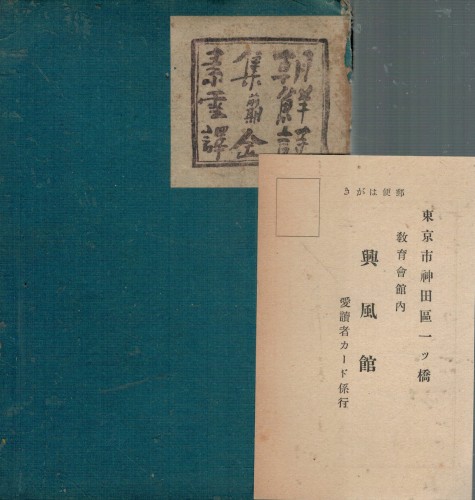 朝鮮詩
集金
素雲譯
郵便はがき
東京市神田區一ツ橋
教育會館內
興風館
愛讀者カード係行